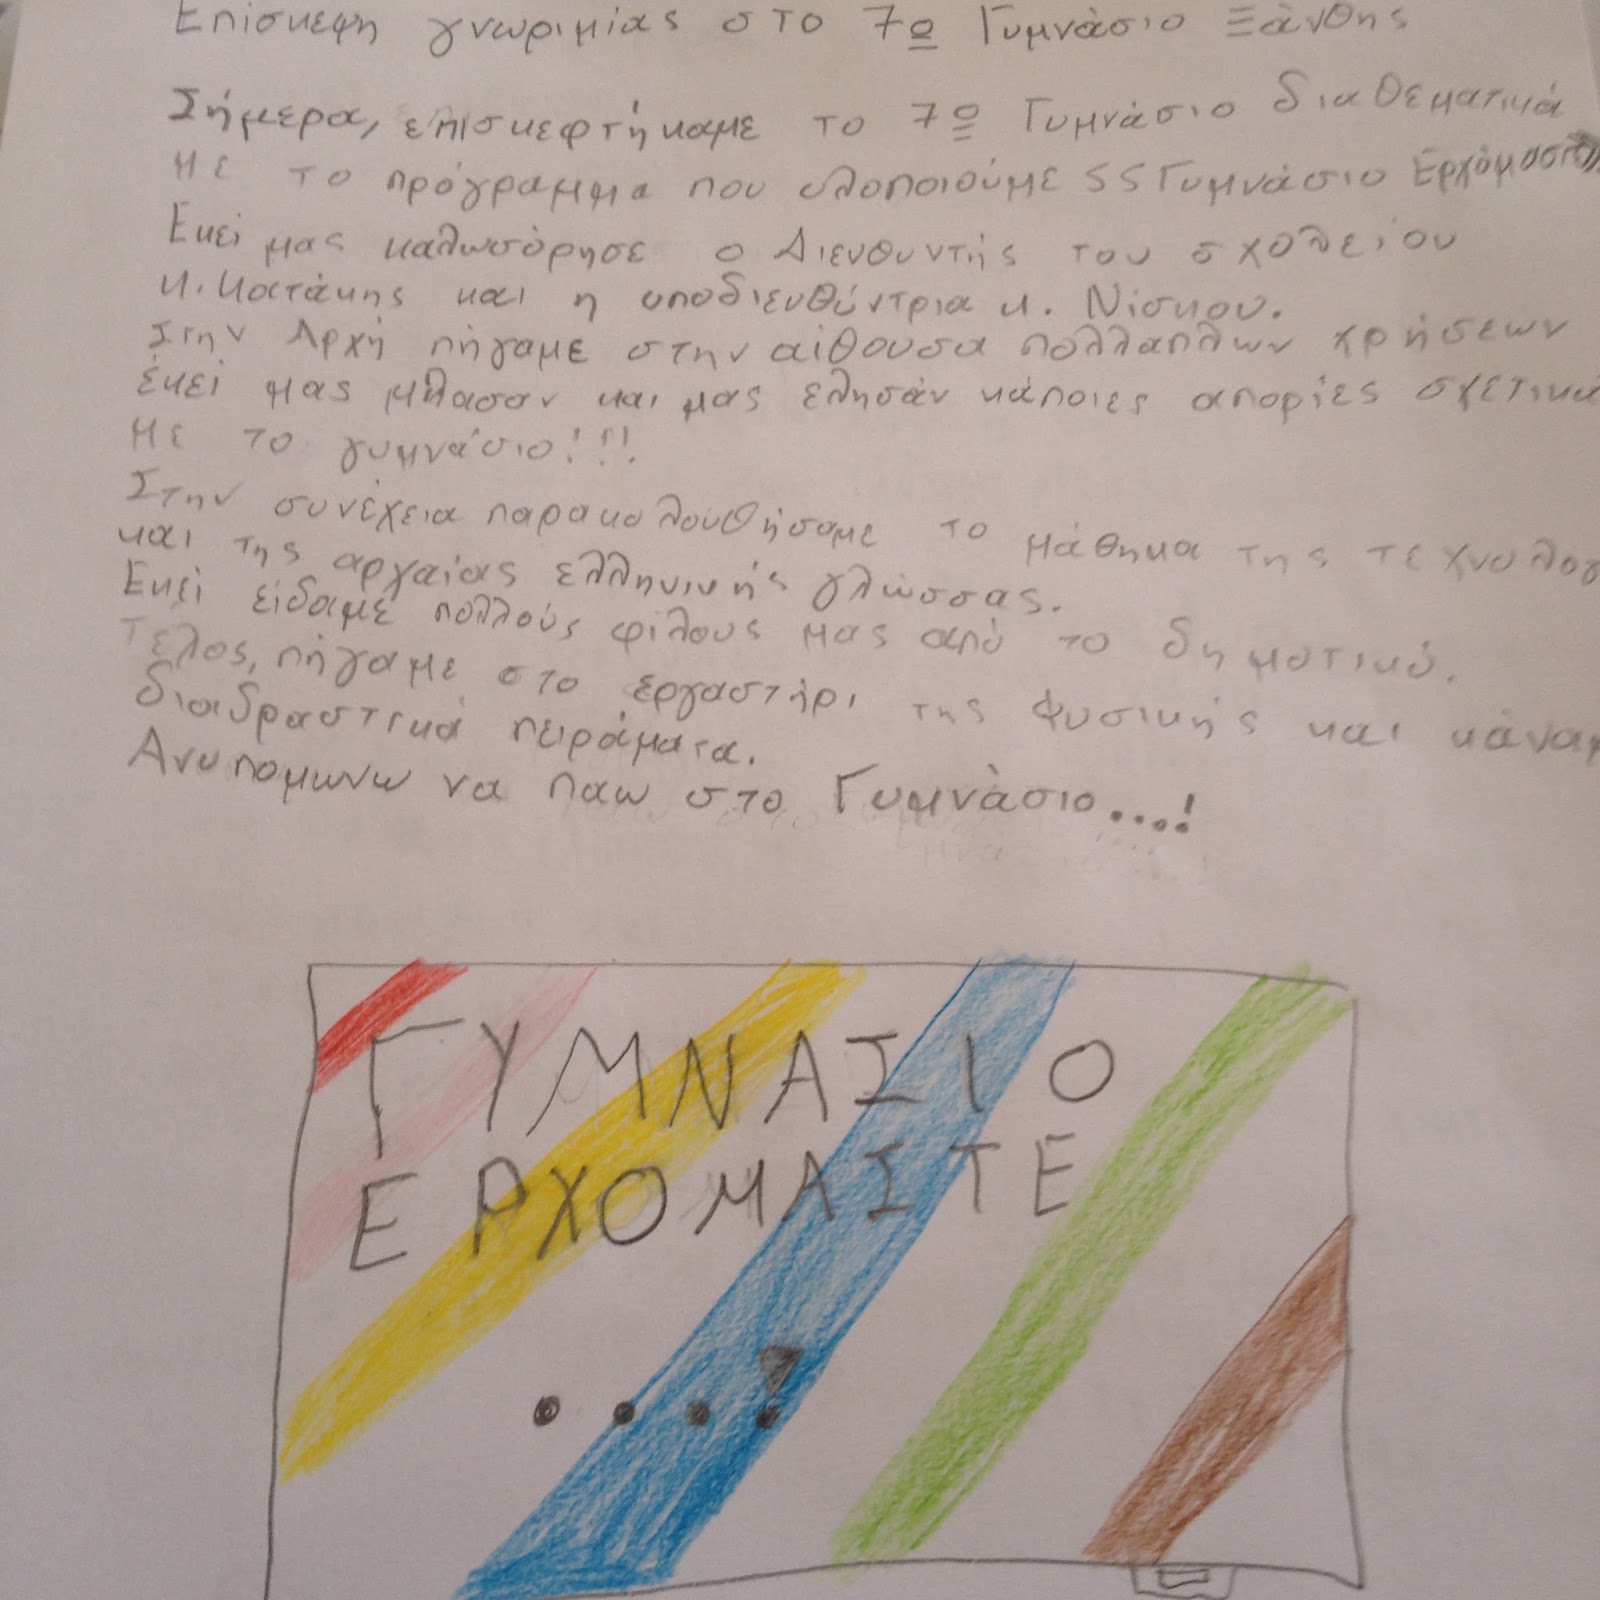 Επίσκεψη γνωριμίας στο 7ο Γυμνάσιο Ξάνθης
Σήμερα, επισκεφτήκαμε το 7ο Γυμνάσιο διαθεματικά
με το πρόγραμμα που υλοποιούμε SS Γυμνάσιο
Εκεί μας καλωσόρησε ο Διευθυντής του σχολείου
κ. Κατάκης και η υποδιευθύντρια κ. Νίσκου.
Στην Αρχή πήγαμε στην αίθουσα πολλαπλων χρήσεων
έκεί μας μίλασαν και μας ελησάν κάποιες απορίες σχετικά
με το γυμνάσιο!!!
Στην συνέχεια παρακολουθήσαμε το μάθηκα της τεχνολογ
και της αρχαίας ελληνικής γλώσσας.
Εκεί είδαμε πολλούς φίλους μας από το δημοτικό.
Τέλος, πήγαμε στο εργαστήρι της Φυσικής και κάναμ
διαδραστικά πειράματα.
Ανυπομωνω να παω στο Γυμνάσιο....!
ΓΥΜΝΑΣΙΟ
ΕΡΧΟΜΑΣΤΕ
....